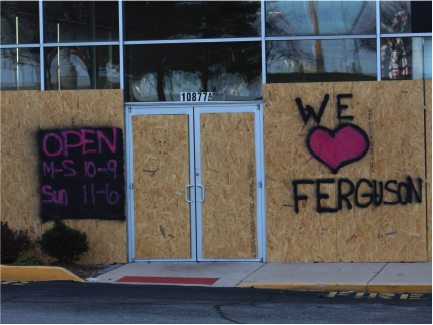 10877A
OPEN
M-S 10-9
Sun 11-6
WE
FERGUSON
FIRE